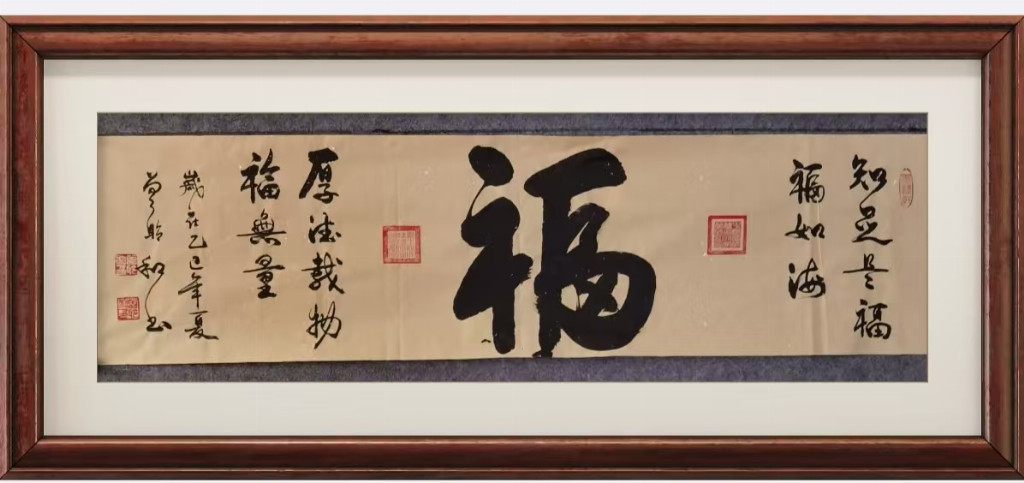 知足是福
福如海
福
厚德載物
福無量
歲在乙巳年夏
和书